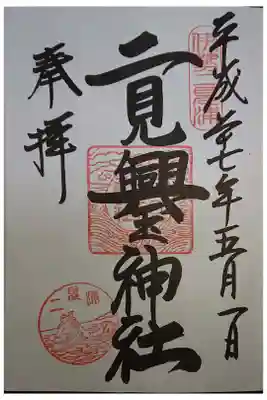 平成廿七年五月一日
二見興玉神社
奉拝